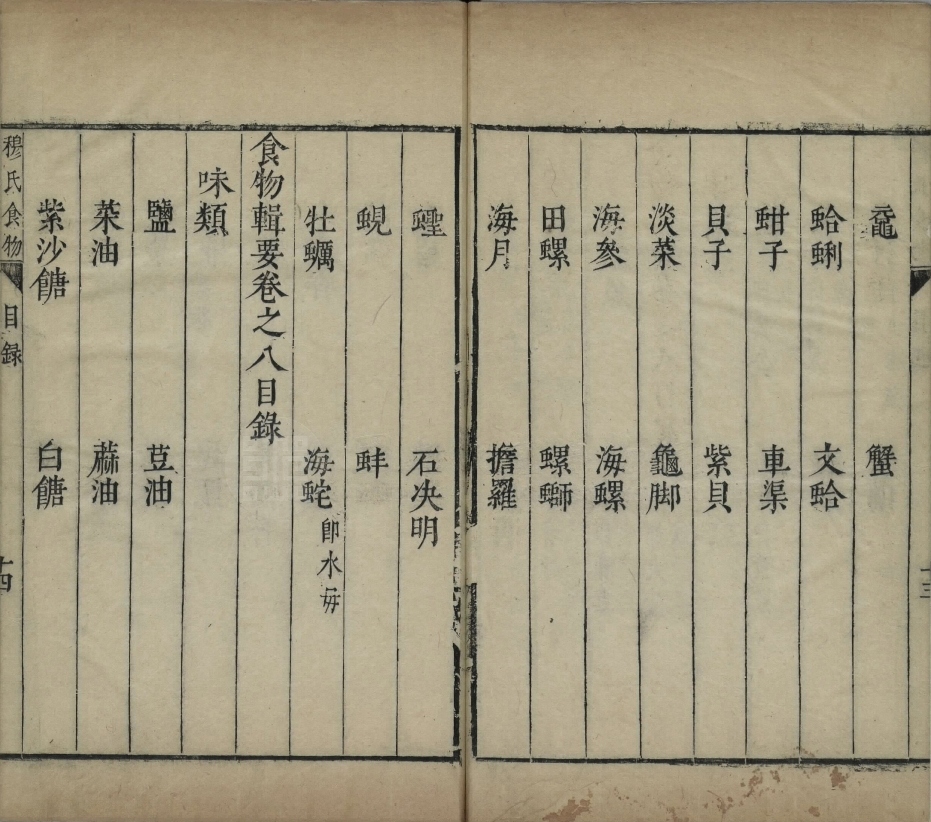 十三
黿 蟹
蛤蜊 文蛤
蚶子 車渠
貝子 紫貝
淡菜 龜脚
海參 海螺
田螺 螺螄
海月 擔羅
蟶 石决明
蜆 蚌
牡蠣 海蛇即水母
食物輯要卷之八目錄
味類
鹽 荳油
菜油 蔴油
紫沙餹 白餹
穆氏食物 目録 十四